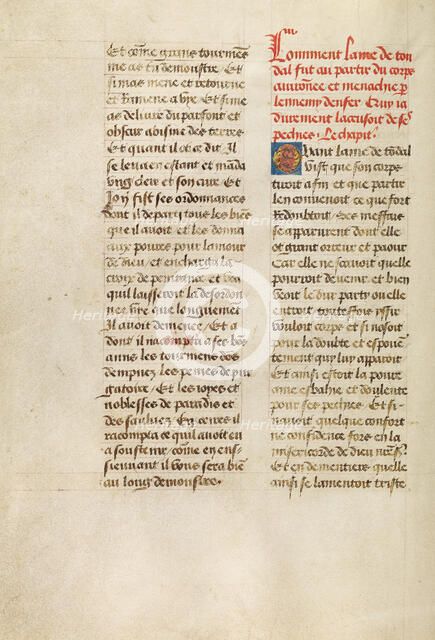 Et co͂me grans tourmens
me as tu demoustre / Et
si mas mene et retourne
et Ramene a vie / Et si me
as deliure du parfont et
obscur abisme des terres
Et quant il ot ce dit Il
se leua en estant et manda
vng clerc et son cure Et
Joy fist ses ordonnances
dont il departy tous les biens
que il auoit et les donna
aux poures pour lamour
de dieu / et encharga la
croix de penitance et voa
quil laisseroit la desordon
nee vie que longuement
Il auoit demenee / Et a
dont il racompta a ses bos
anns les tourmens des
dempnez les peines de pur
gatoire / Et les ioyes et
noblesses de paradis et
des sauluez Et en vers il
racompta ce quil auoit en
a soustenir / come en en
sieuuant il vous sera bien
au long demonstre.
iiij
Comment lame de ton
dal fut au partir du corps
auironee et menachie p
lennemy denfer Et luy ia
durement laccusoit de ses
pechies / Le chapit
Quant lame de tondal
vist que son corps
tiroit a fin et que partir
len conuenoit ce que fort
Redoubtoit / Ses meffais
se apparurent dont elle
ot grant orreur et paour
Car elle ne scauoit quelle
pourroit deuenir et bien
veoit le dur party ou elle
entroit toute fois issir
vouloit du corps et si nosoit
pour la doubte et espoue͂
tement quy luy apparoit
Et ainsi estoit la poure
ame esbahie et doulente
pour ses pechies Et si
nauoit quelque confort
ne confidence fors en la
misericorde de dieu
Et en dementiere quelle
ainsi se lamentoit triste
Heritage
Heritage
Heritage